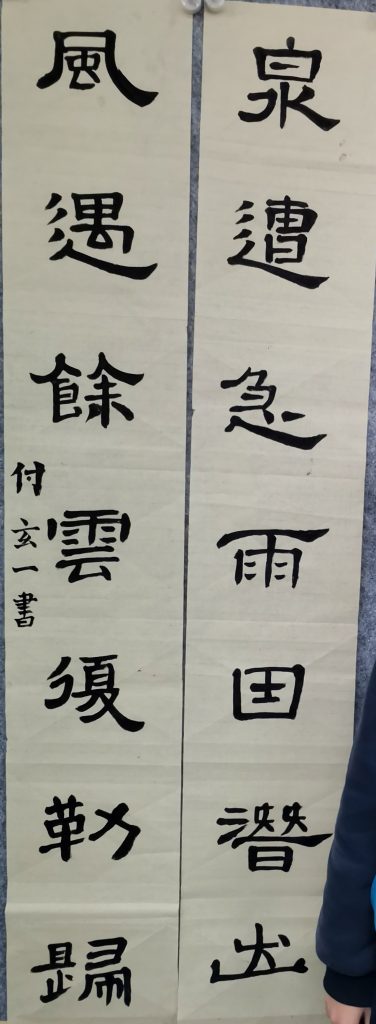 泉遭急雨因潛出
風遇餘雲復勒歸
付玄一書